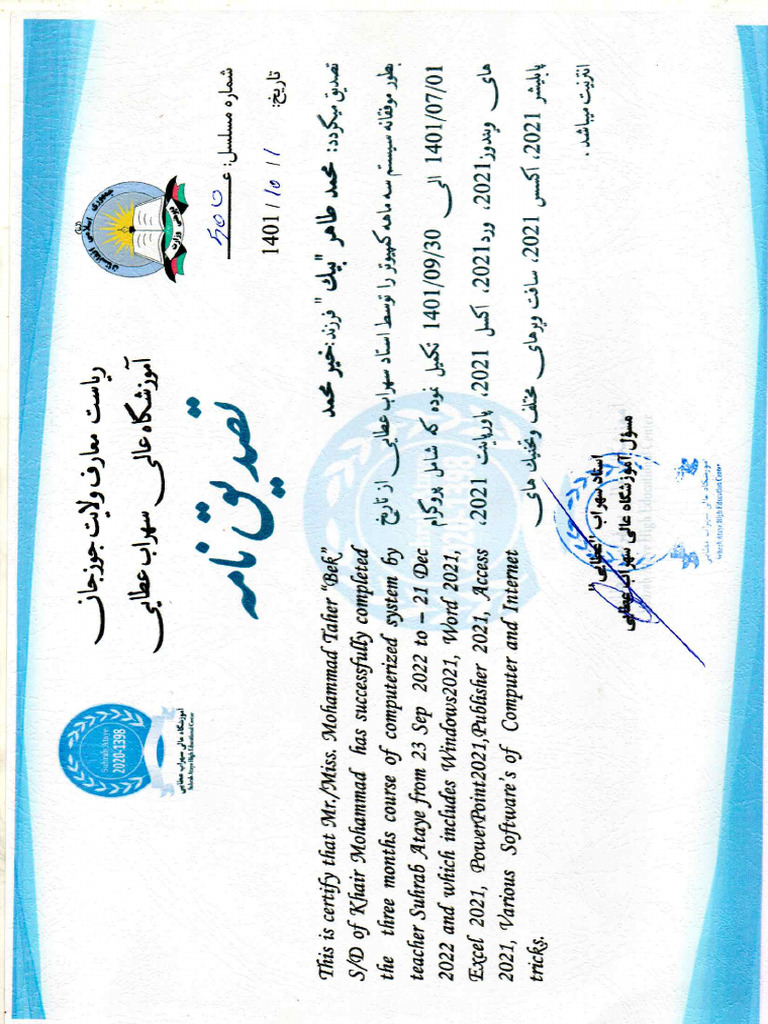 ریاست معارف ولایت جوزجان
آموزشگاه عالی سهراب عطایی
تصدیق نامه
شماره مسلسل:
تاریخ: 1401
Suhrab Ataye
2020-1398
آموزشگاه عالی سهراب عطایی
Suhrab Ataye High Education Center
This is certify that Mr./Miss. Mohammad Taher "Bek"
S/D of Khair Mohammad has successfully completed
the three months course of computerized system by
teacher Suhrab Ataye from 23 Sep 2022 to – 21 Dec
2022 and which includes Windows2021, Word 2021,
Excel 2021, PowerPoint2021,Publisher 2021, Access
2021, Various Software's of Computer and Internet
tricks.
تصدیق میگردد: محمد طاهر "بیک" فرزند: خیر محمد
بطور موفقانه سیستم سه ماهه کمپیوتر را توسط استاد سهراب عطایی از تاریخ
1401/07/01 الی 1401/09/30 تکمیل نموده که شامل پروگرام
های ویندوز2021، ورد2021، اکسل 2021، پاورپاینت 2021،
پابلیشر 2021، اکسس 2021، سافت ویرهای مختلف وتخنیک های
انترنیت میباشد .
استاد سهراب "عطایی"
مسؤل آموزشگاه عالی سهراب عطایی
آموزشگاه عالی سهراب عطایی
Suhrab Ataye High Education Center